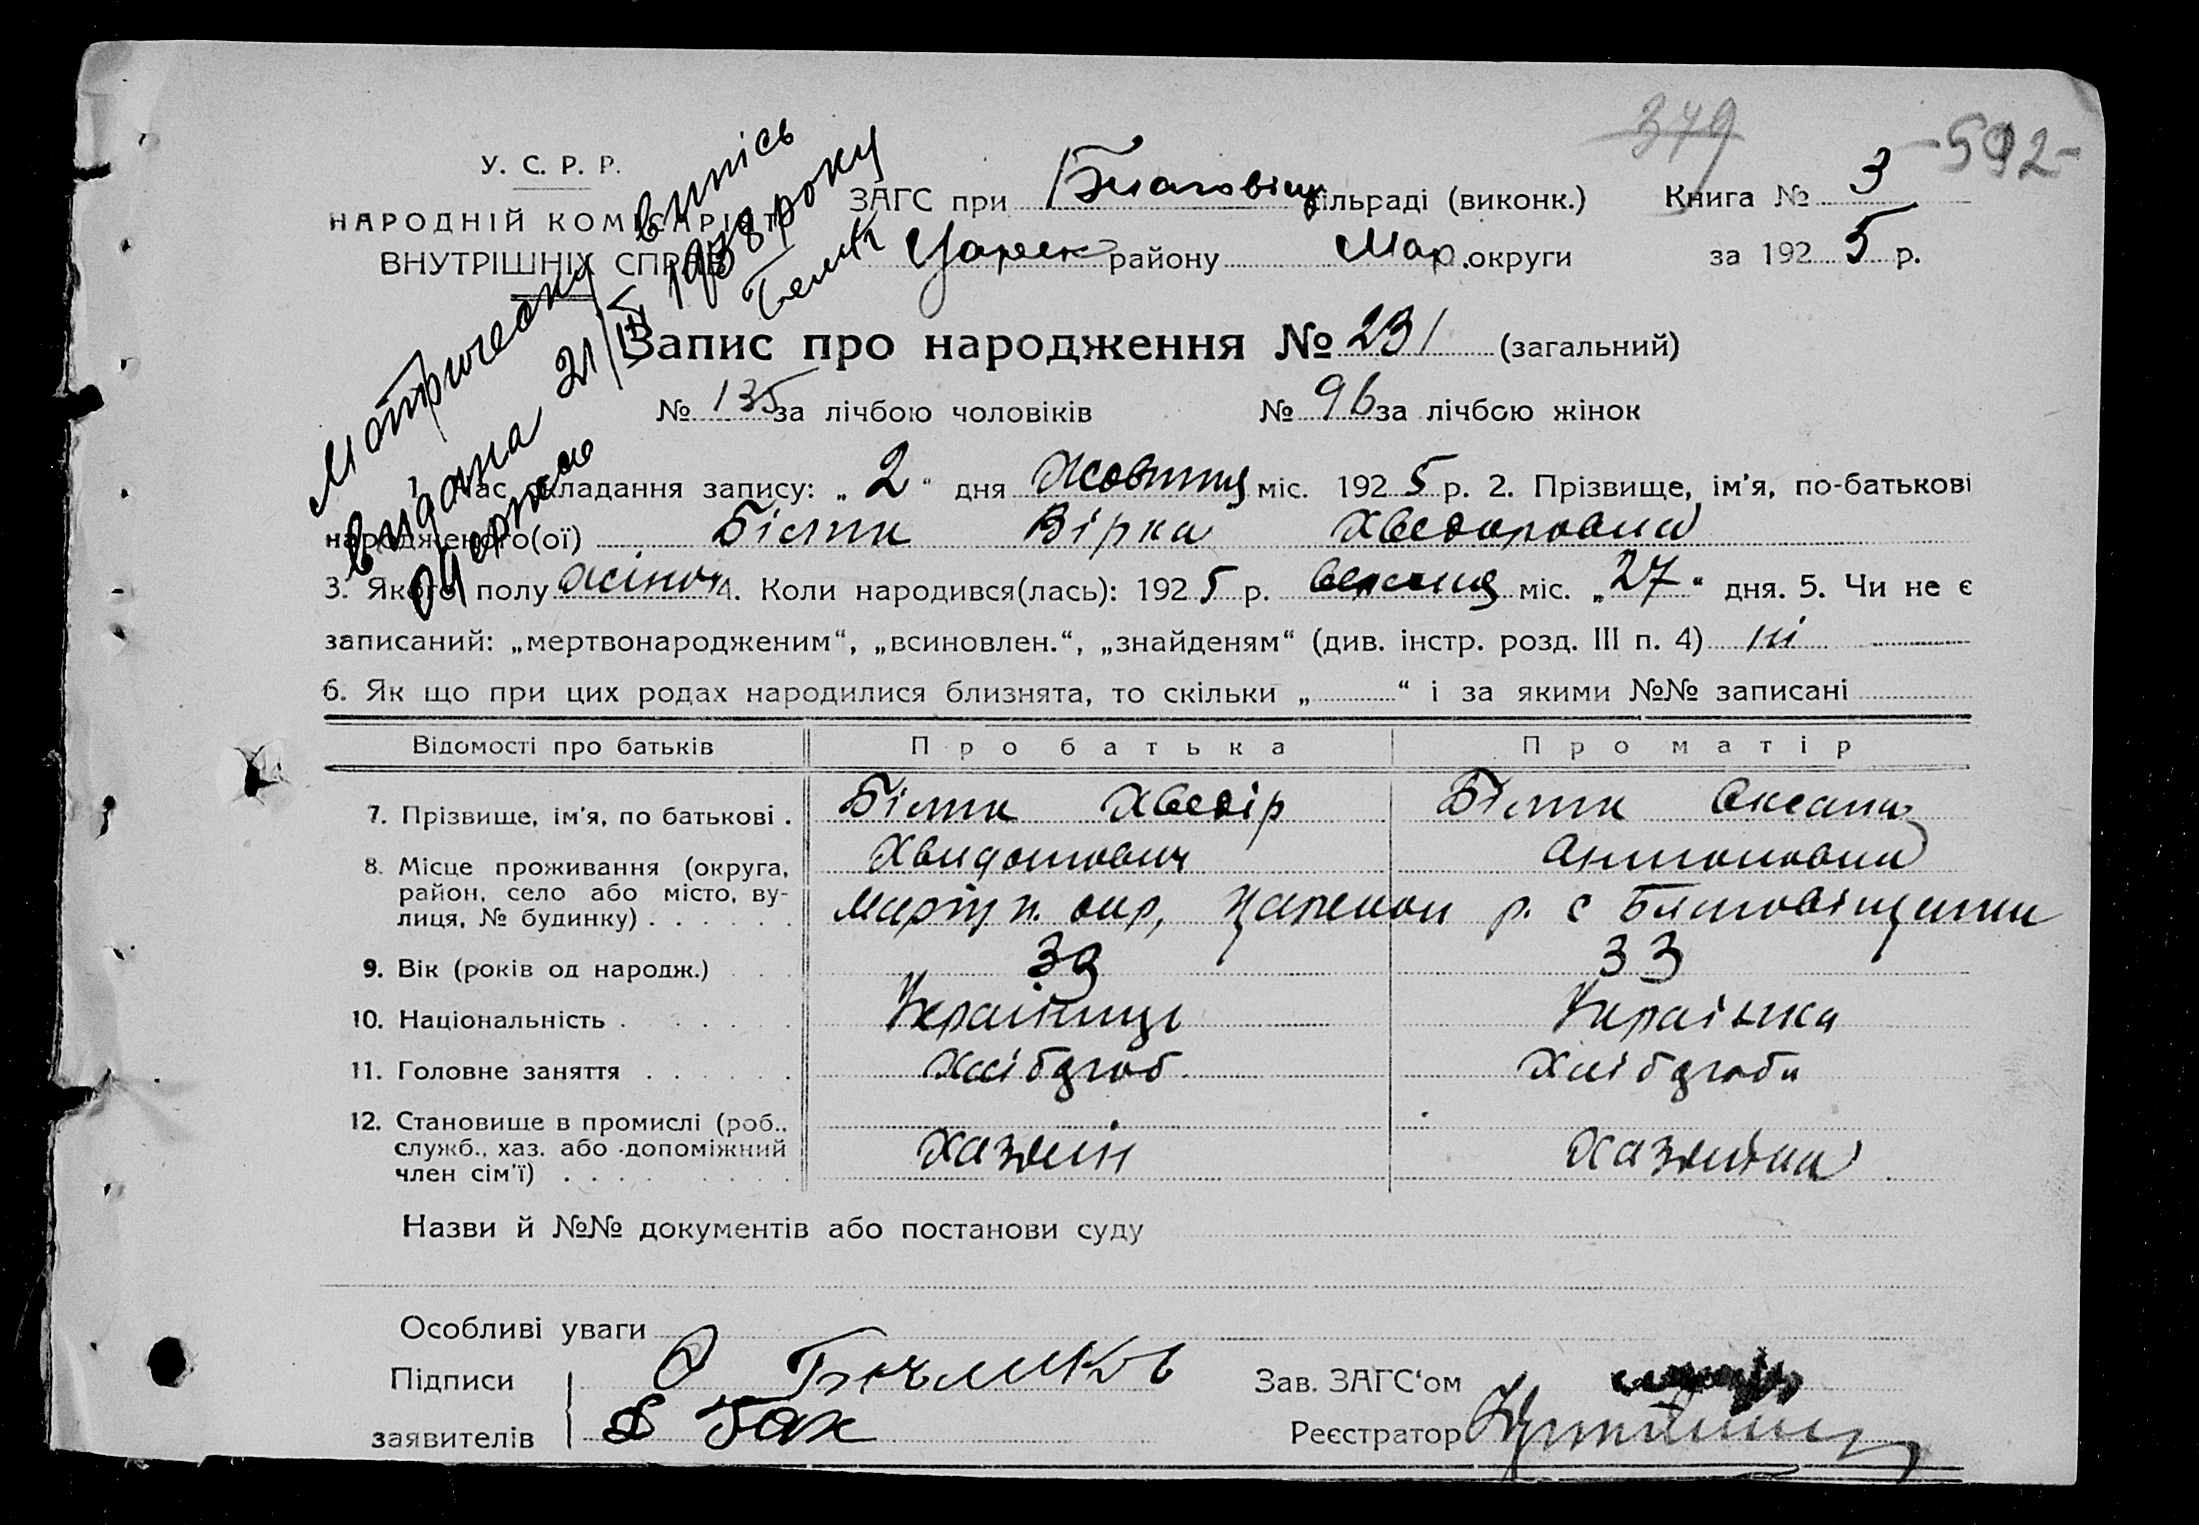 379
-592-
У. С. Р. Р.
НАРОДНІЙ КОМІСАРІЯТ
ВНУТРІШНІХ СПРАВ
ЗАГС при Благовіщ сільраді (виконк.) Книга № 3
Царек району Мар. округи за 1925 р.
Метрическу випісь
видана 21/IV 1938 року
Запис про народження № 231 (загальний)
№ 135 за лічбою чоловіків № 96 за лічбою жінок
1. Час складання запису: „2“ дня Жовтня міс. 1925 р. 2. Прізвище, ім'я, по-батькові
народженого(ої) Білик Вірка Хведоровна
3. Якого полу жіноч 4. Коли народився(лась): 1925 р. вересня міс. „27“ дня. 5. Чи не є
записаний: „мертвонародженим“, „всиновлен.“, „знайденям“ (див. інстр. розд. III п. 4) ні
6. Як що при цих родах народилися близнята, то скільки „ “ і за якими №№ записані
Відомості про батьків Про батька Про матір
7. Прізвище, ім'я, по батькові . Білик Хведір Білик Оксана
Антоновна
8. Місце проживання (округа, район, село або місто, вулиця, № будинку) Маріуп. окр, р. с
9. Вік (років од народж.) 39 33
10. Національність Українець Українка
11. Головне заняття Хлібороб Хлібороби
12. Становище в промислі (роб., служб., хаз. або допоміжний член сім'ї) Хазяїн Хазяйка
Назви й №№ документів або постанови суду
Особливі уваги
Підписи
заявителів
Зав. ЗАГС'ом
Реєстратор